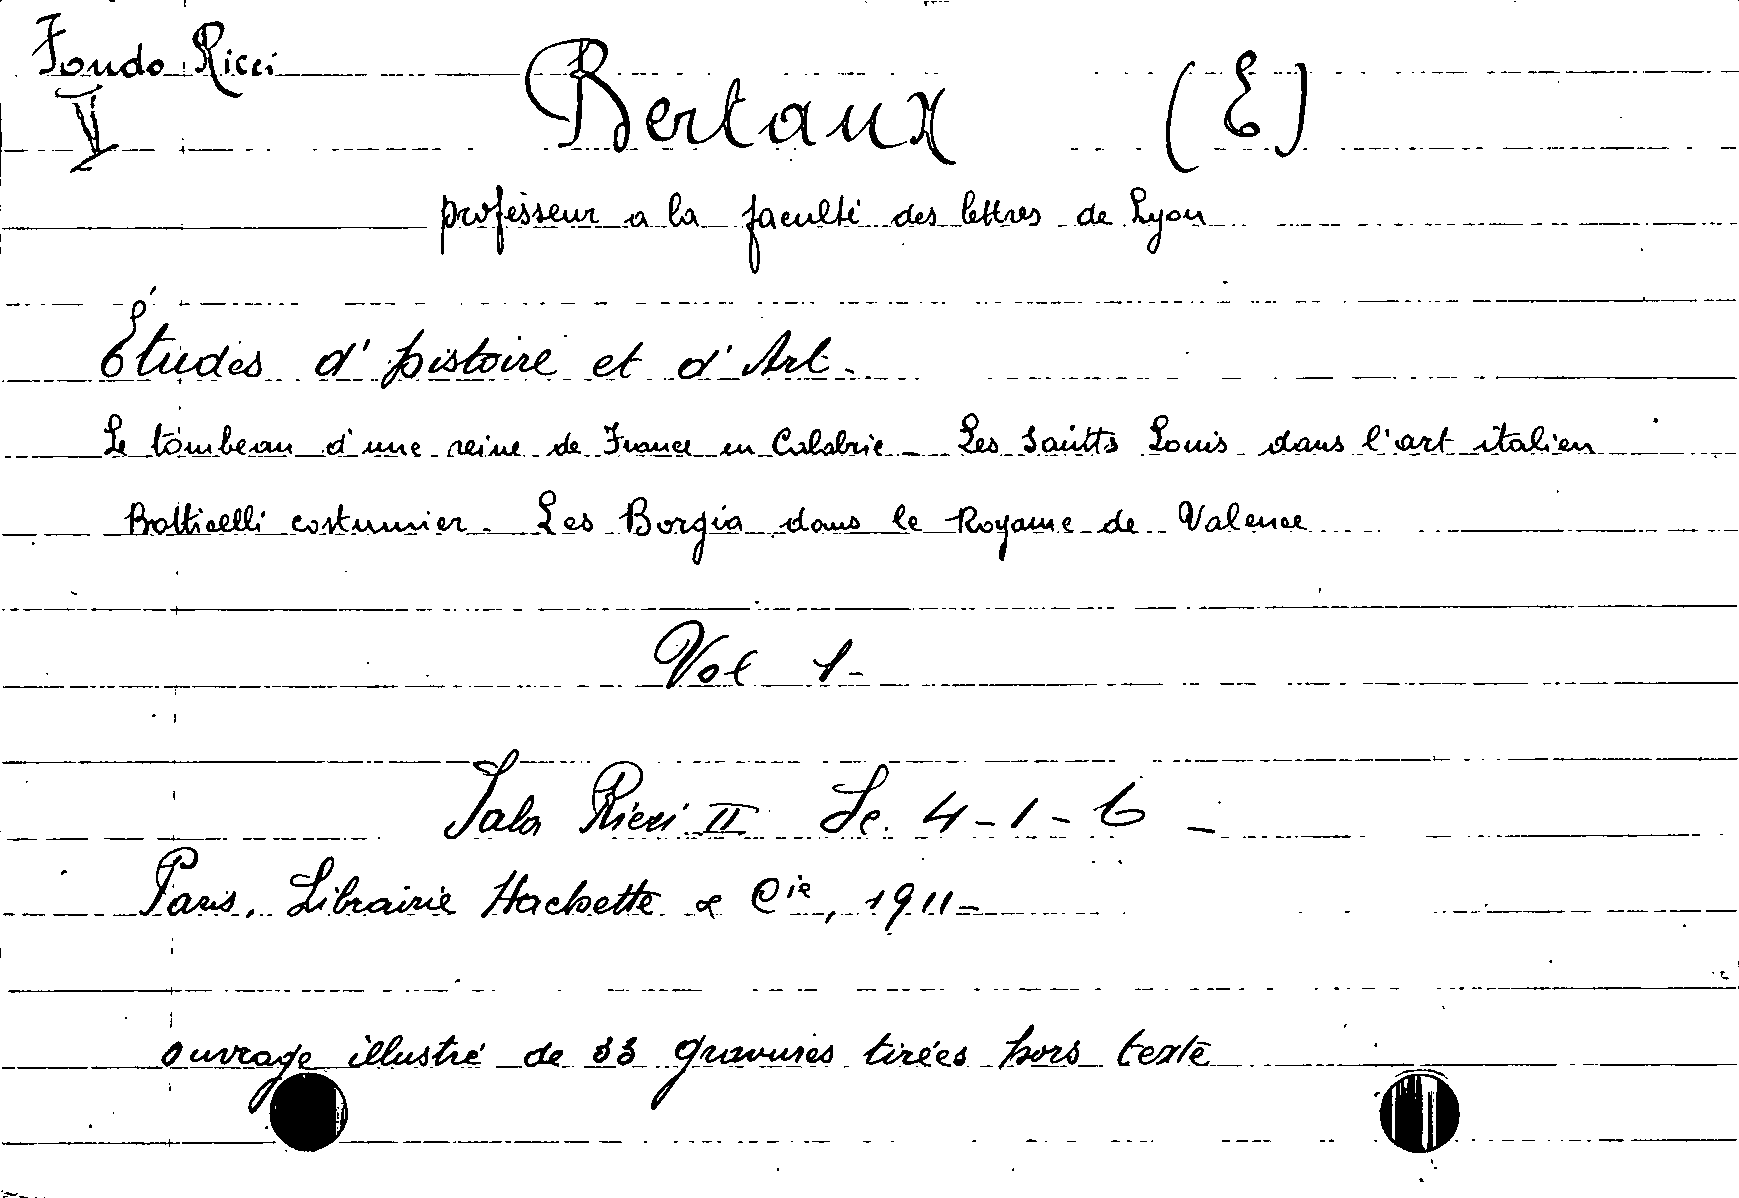 Fondo Ricci
V
Bertaux (E)
professeur a la faculté des lettres de Lyon
Études d'histoire et d'Art.
Le tombeau d'une reine de France en Calabrie - Les Saints Louis dans l'art italien
Botticelli costumier. Les Borgia dans le Royame de Valence
Vol 1-
Sala Ricci II Sc. 4-1-6 -
Paris, Librairie Hachette & Cie, 1911-
ouvrage illustré de 33 gravures tirées hors texte